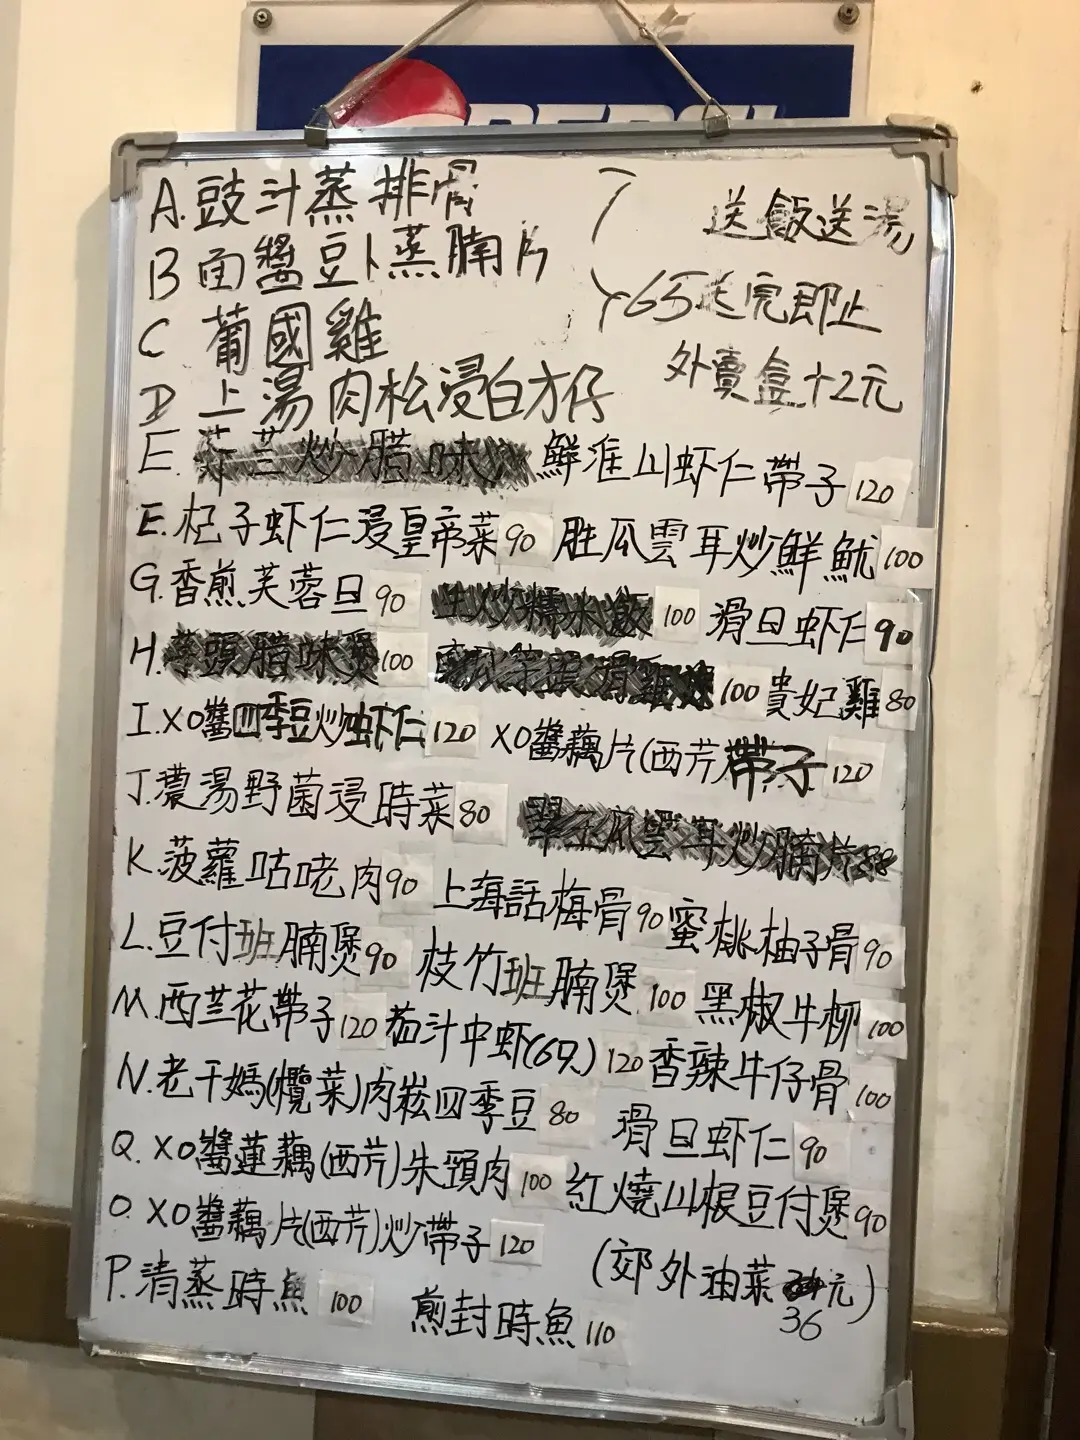 PEPSI
A.豉汁蒸排骨 送飯送湯
B 面醬豆卜蒸腩片
65送完即止
C 葡國雞
外賣盒+2元
D 上湯肉松浸白方仔
E. 鮮淮山虾仁帶子 120
E.杞子虾仁浸皇帝菜 90 胜瓜雲耳炒鮮魷 100
G.香煎芙蓉旦 90 生炒糯米飯 100 滑旦虾仁 90
H. 100 100 貴妃雞 80
I.XO醬四季豆炒虾仁 120 XO醬藕片(西芹)帶子 120
J.濃湯野菌浸時菜 80
K.菠蘿咕咾肉 90 上海話梅骨 90 蜜桃柚子骨 90
L.豆付班腩煲 90 枝竹班腩煲 100 黑椒牛柳 100
M.西兰花帶子 120 茄汁中虾(6只) 120 香辣牛仔骨 100
N.老干媽(欖菜)肉崧四季豆 80 滑旦虾仁 90
Q. XO醬蓮藕(西芹)朱頸肉 100 紅燒山根豆付煲 90
O. XO醬藕片(西芹)炒帶子 120
(郊外油菜 元)
36
P.清蒸時魚 100 煎封時魚 110